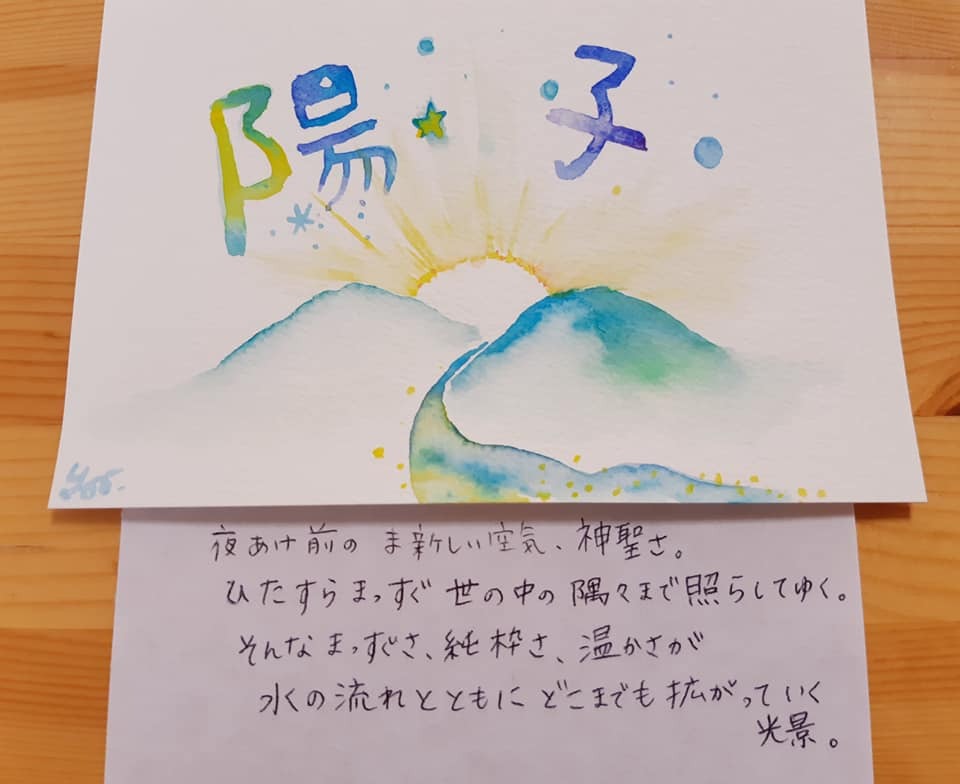 陽子
夜あけ前の ま新しい空気、神聖さ。
ひたすらまっすぐ 世の中の 隅々まで照らしてゆく。
そんなまっすぐさ、純粋さ、温かさが
水の流れとともに どこまでも 拡がっていく
光景。